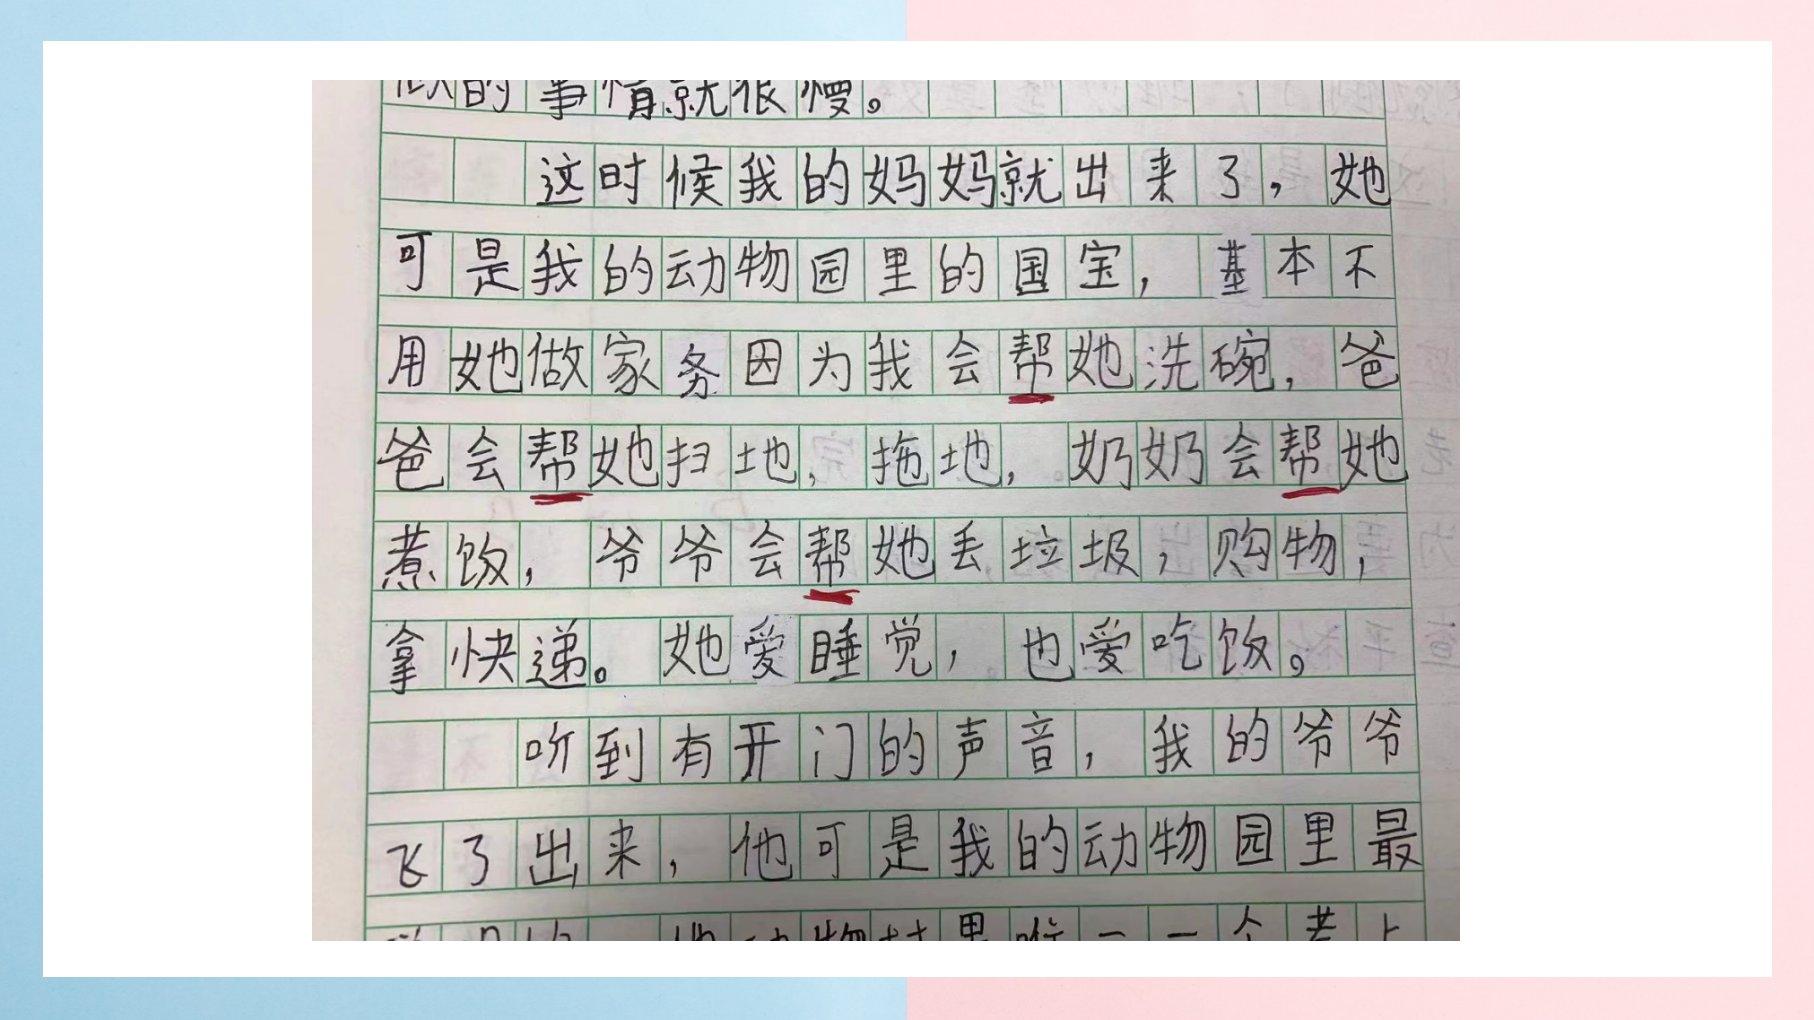 的事情就很慢。
这时候我的妈妈就出来了，她
可是我的动物园里的国宝，基本不
用她做家务因为我会帮她洗碗，爸
爸会帮她扫地，拖地，奶奶会帮她
煮饭，爷爷会帮她丢垃圾，购物，
拿快递。她爱睡觉，也爱吃饭。
听到有开门的声音，我的爷爷
飞了出来，他可是我的动物园里最